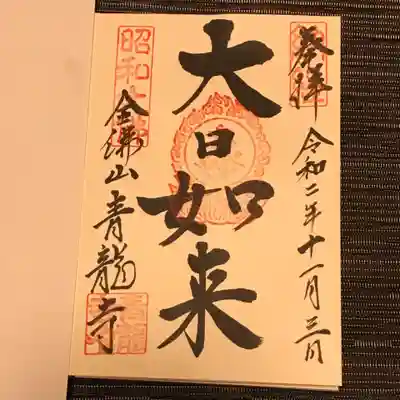 奉拝
令和二年十一月三日
大日如来
昭和大佛
全佛山青龍寺